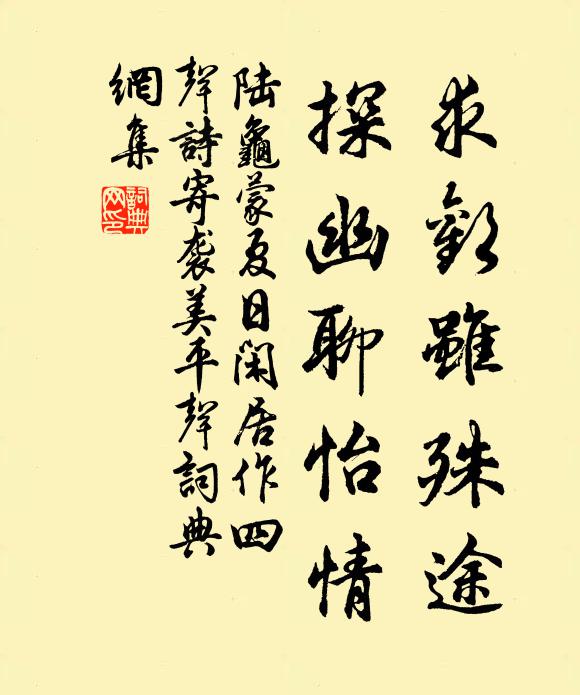 求歡雖殊途
探幽聊怡情
陸龜蒙夏日閑居作四
聲詩寄襲美平聲詞典
網集
詞典网印